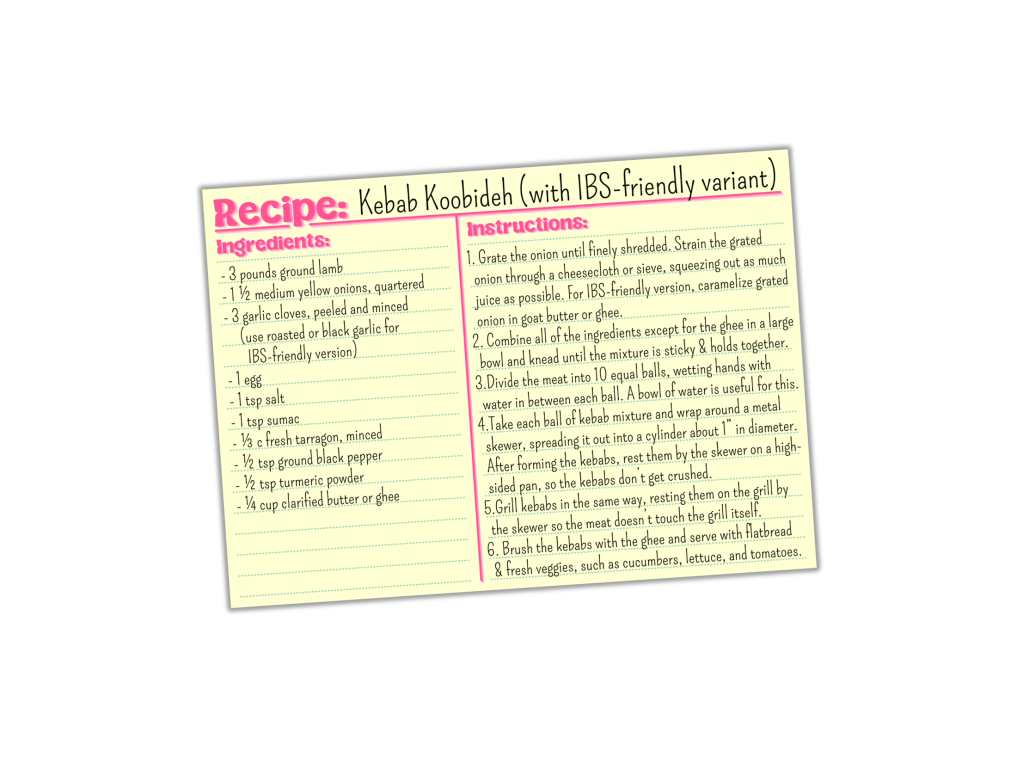 Recipe: Kebab Koobideh (with IBS-friendly variant)
Ingredients:
- 3 pounds ground lamb
- 1 ½ medium yellow onions, quartered
- 3 garlic cloves, peeled and minced
(use roasted or black garlic for
IBS-friendly version)
- 1 egg
- 1 tsp salt
- 1 tsp sumac
- ⅓ c fresh tarragon, minced
- ½ tsp ground black pepper
- ½ tsp turmeric powder
- ¼ cup clarified butter or ghee
Instructions:
1. Grate the onion until finely shredded. Strain the grated
onion through a cheesecloth or sieve, squeezing out as much
juice as possible. For IBS-friendly version, caramelize grated
onion in goat butter or ghee.
2. Combine all of the ingredients except for the ghee in a large
bowl and knead until the mixture is sticky & holds together.
3.Divide the meat into 10 equal balls, wetting hands with
water in between each ball. A bowl of water is useful for this.
4.Take each ball of kebab mixture and wrap around a metal
skewer, spreading it out into a cylinder about 1" in diameter.
After forming the kebabs, rest them by the skewer on a high-
sided pan, so the kebabs don't get crushed.
5.Grill kebabs in the same way, resting them on the grill by
the skewer so the meat doesn't touch the grill itself.
6. Brush the kebabs with the ghee and serve with flatbread
& fresh veggies, such as cucumbers, lettuce, and tomatoes.